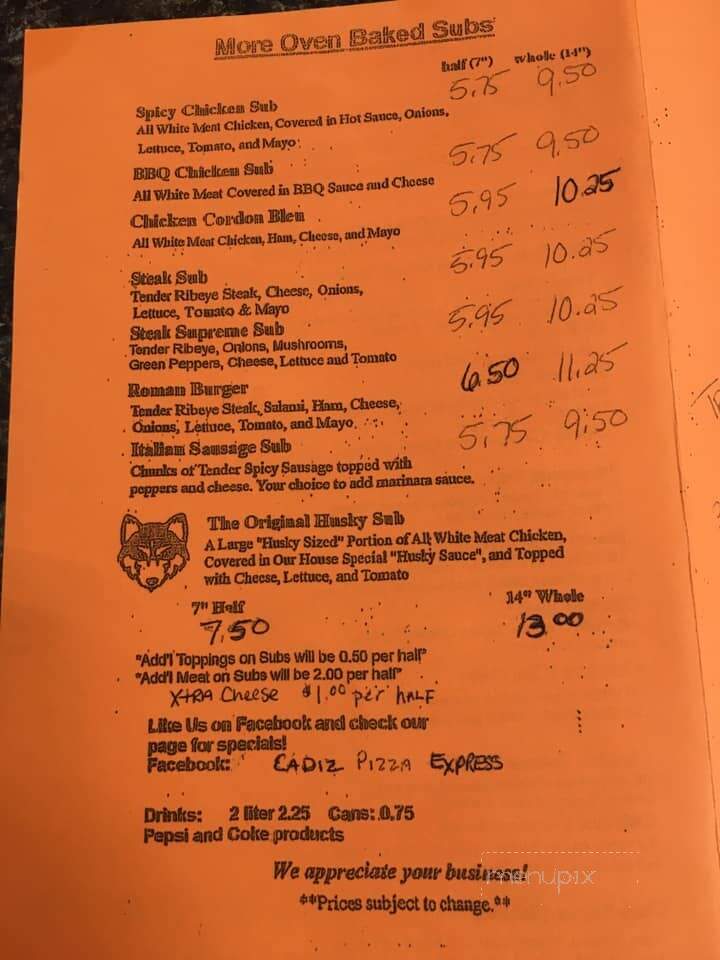 More Oven Baked Subs
half (7") whole (14")
Spicy Chicken Sub 5.75 9.50
All White Meat Chicken, Covered in Hot Sauce, Onions,
Lettuce, Tomato, and Mayo
BBQ Chicken Sub 5.75 9.50
All White Meat Covered in BBQ Sauce and Cheese
Chicken Cordon Bleu 5.95 10.25
All White Meat Chicken, Ham, Cheese, and Mayo
Steak Sub 5.95 10.25
Tender Ribeye Steak, Cheese, Onions,
Lettuce, Tomato & Mayo
Steak Supreme Sub 5.95 10.25
Tender Ribeye, Onions, Mushrooms,
Green Peppers, Cheese, Lettuce and Tomato
Roman Burger 6.50 11.25
Tender Ribeye Steak, Salami, Ham, Cheese,
Onions, Lettuce, Tomato, and Mayo
Italian Sausage Sub 5.75 9.50
Chunks of Tender Spicy Sausage topped with
peppers and cheese. Your choice to add marinara sauce.
The Original Husky Sub
A Large "Husky Sized" Portion of All White Meat Chicken,
Covered in Our House Special "Husky Sauce", and Topped
with Cheese, Lettuce, and Tomato
7" Half 14" Whole
7.50 13.00
"Add'l Toppings on Subs will be 0.50 per half"
"Add'l Meat on Subs will be 2.00 per half"
XTRA Cheese $1.00 per HALF
Like Us on Facebook and check our
page for specials!
Facebook: CADIZ PIZZA EXPRESS
Drinks: 2 liter 2.25 Cans: 0.75
Pepsi and Coke products
We appreciate your business!
menupix
**Prices subject to change.**